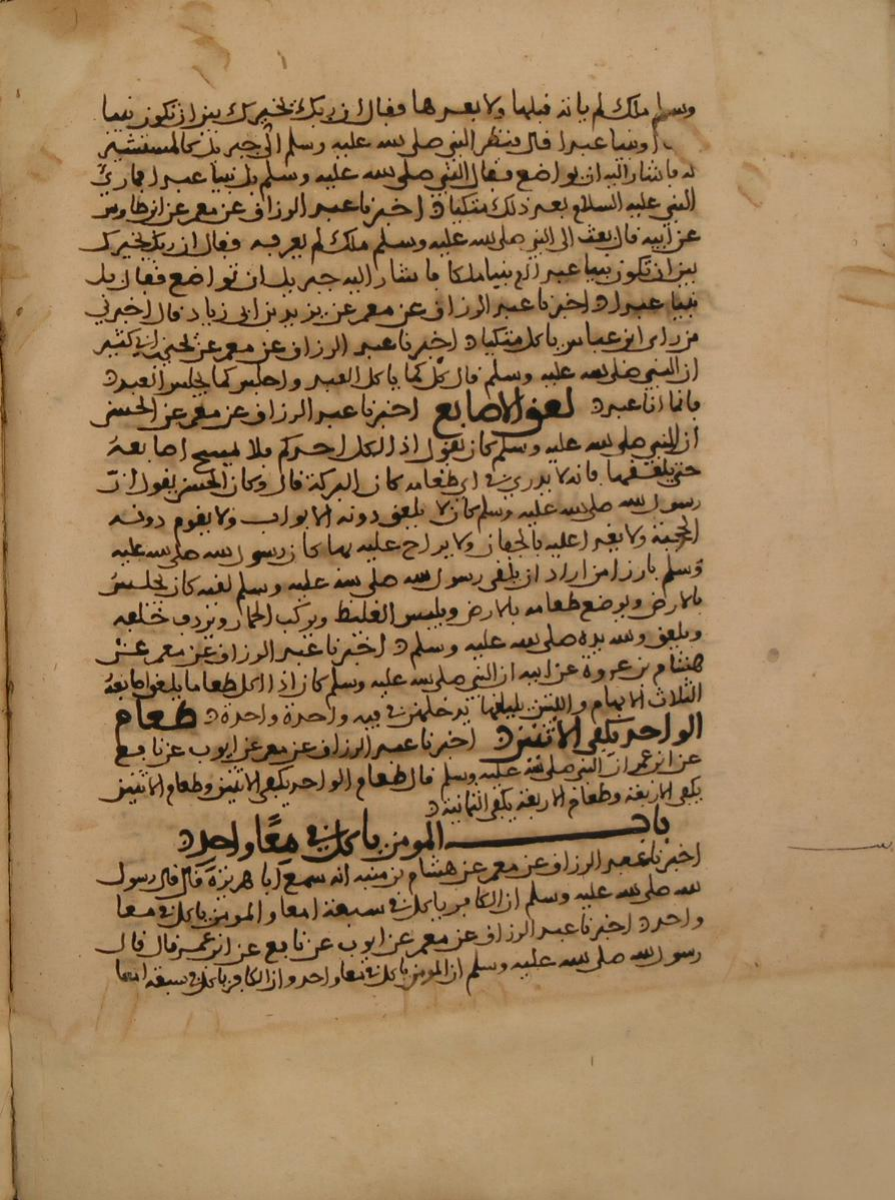 وسلم ملك لم يأته قبلها ولا بعدها فقال ان ربك يخيرك بين ان تكون نبيا
او نبيا عبدا قال فنظر النبي صلى الله عليه وسلم الى جبريل كالمستشير
له فاشار اليه ان تواضع فقال النبي صلى الله عليه وسلم بل نبيا عبدا فما رئي
النبي عليه السلام بعد ذلك متكيا ه اخبرنا عبد الرزاق عن معمر عن ابن طاوس
عن ابيه قال بعث الى النبي صلى الله عليه وسلم ملك لم يعرفه فقال ان ربك يخيرك
بين ان تكون نبيا عبدا او نبيا ملكا فاشار اليه جبريل ان تواضع فقال بل
نبيا عبدا ه اخبرنا عبد الرزاق عن معمر عن يزيد بن ابي زياد قال اخبرني
من راى ابن عباس ياكل متكيا ه اخبرنا عبد الرزاق عن معمر عن يحيى بن ابي كثير
ان النبي صلى الله عليه وسلم قال كل كما ياكل العبد واجلس كما يجلس العبد ه
فانما انا عبد ه لعق الاصابع اخبرنا عبد الرزاق عن معمر عن الحسن
ان النبي صلى الله عليه وسلم كان يقول اذا اكل احدكم فلا يمسح اصابعه
حتى يلعقها فانه لا يدري في اي طعامه كان البركة قال وكان الحسن يقول ان
رسول الله صلى الله عليه وسلم كان لا يغلق دونه الابواب ولا يقوم دونه
الحجبة ولا يغدا عليه بالجفان ولا يراح عليه بها كان رسول الله صلى الله عليه
وسلم بارزا من اراد ان يلقى رسول الله صلى الله عليه وسلم لقيه كان يجلس
بالارض ويوضع طعامه بالارض ويلبس الغليظ ويركب الحمار ويردف خلفه
ويلعق والله يده صلى الله عليه وسلم ه اخبرنا عبد الرزاق عن معمر عن
هشام بن عروة عن ابيه ان النبي صلى الله عليه وسلم كان اذا اكل طعاما يلعق اصابعه
الثلاث الابهام واللتين يليانها يدخلهن في فيه واحدة واحدة ه طعام
الواحد يكفي الاثنين ه اخبرنا عبد الرزاق عن معمر عن ايوب عن نافع
عن ابن عمر ان النبي صلى الله عليه وسلم قال طعام الواحد يكفي الاثنين وطعام الاثنين
يكفي الاربعة وطعام الاربعة يكفي الثمانية ه
باب المومن ياكل في معًا واحد ه
اخبرنا عبد الرزاق عن معمر عن هشام بن منبه انه سمع ابا هريرة قال قال رسول
الله صلى الله عليه وسلم ان الكافر ياكل في سبعة امعا والمومن ياكل في معا
واحد ه اخبرنا عبد الرزاق عن معمر عن ايوب عن نافع عن ابن عمر قال قال
رسول الله صلى الله عليه وسلم ان المومن ياكل في معا واحد وان الكافر ياكل في سبعة امعا